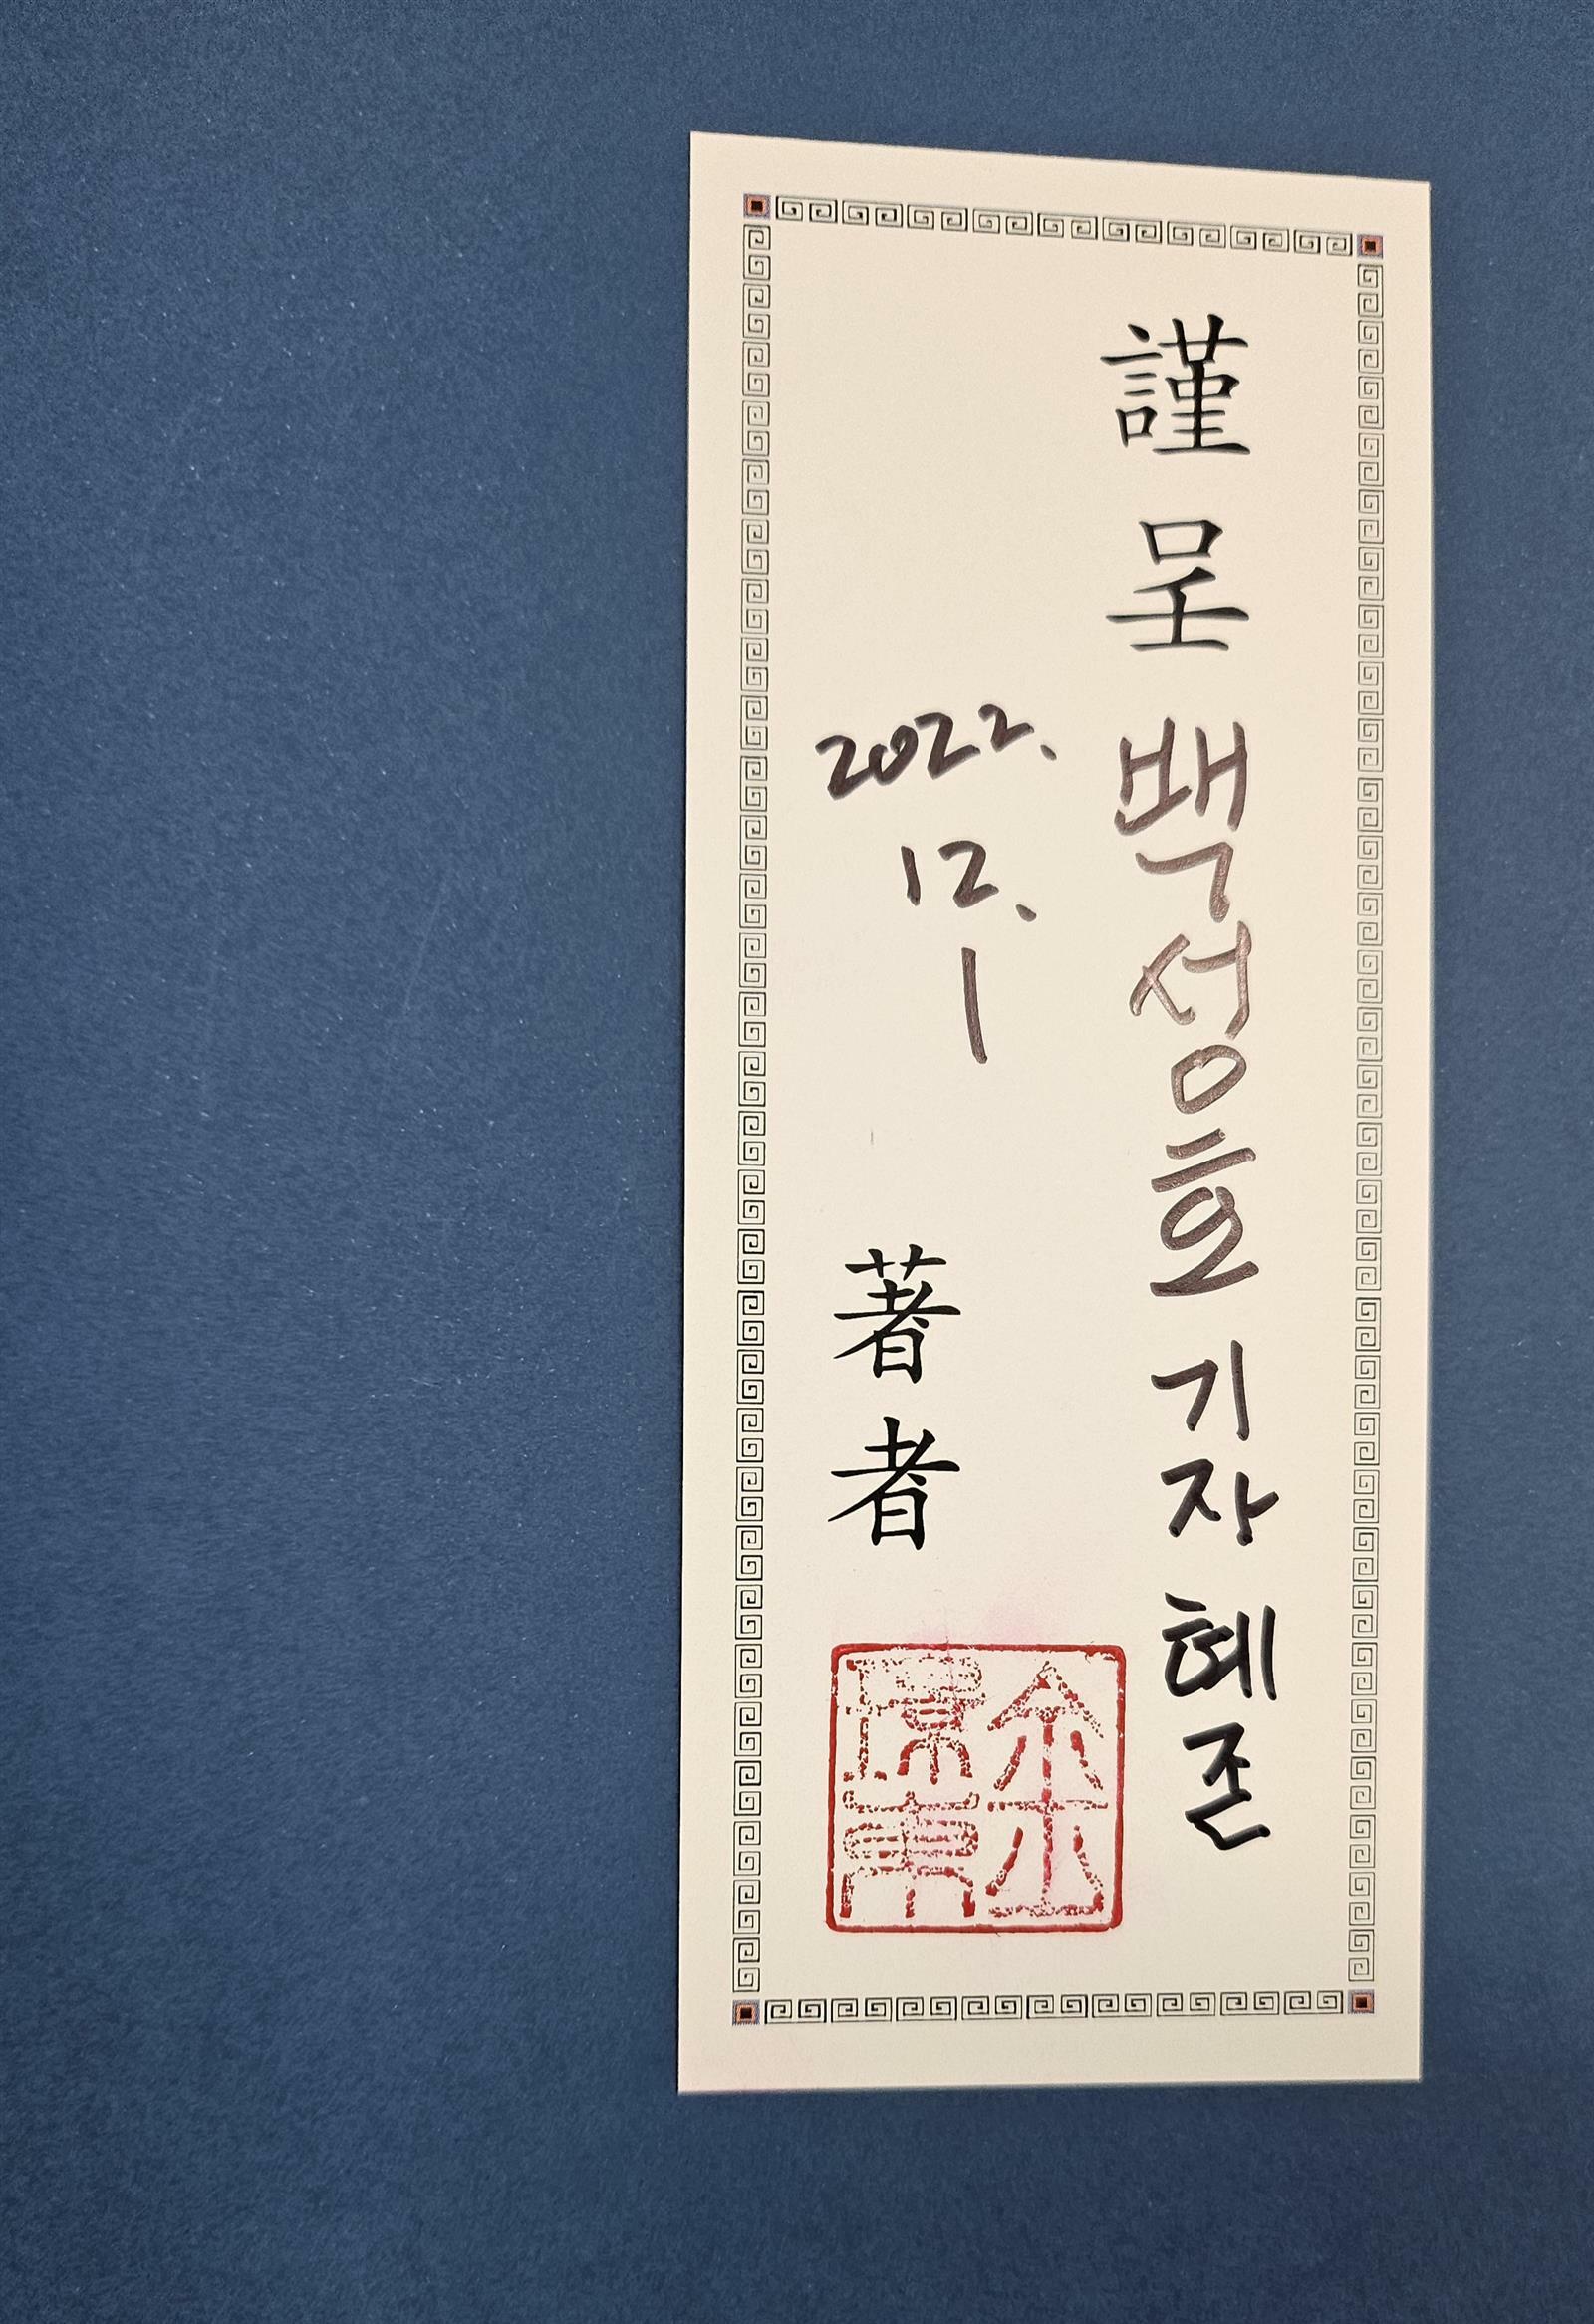 謹呈 백성호 기자 혜존
2022.
12.
1
著者